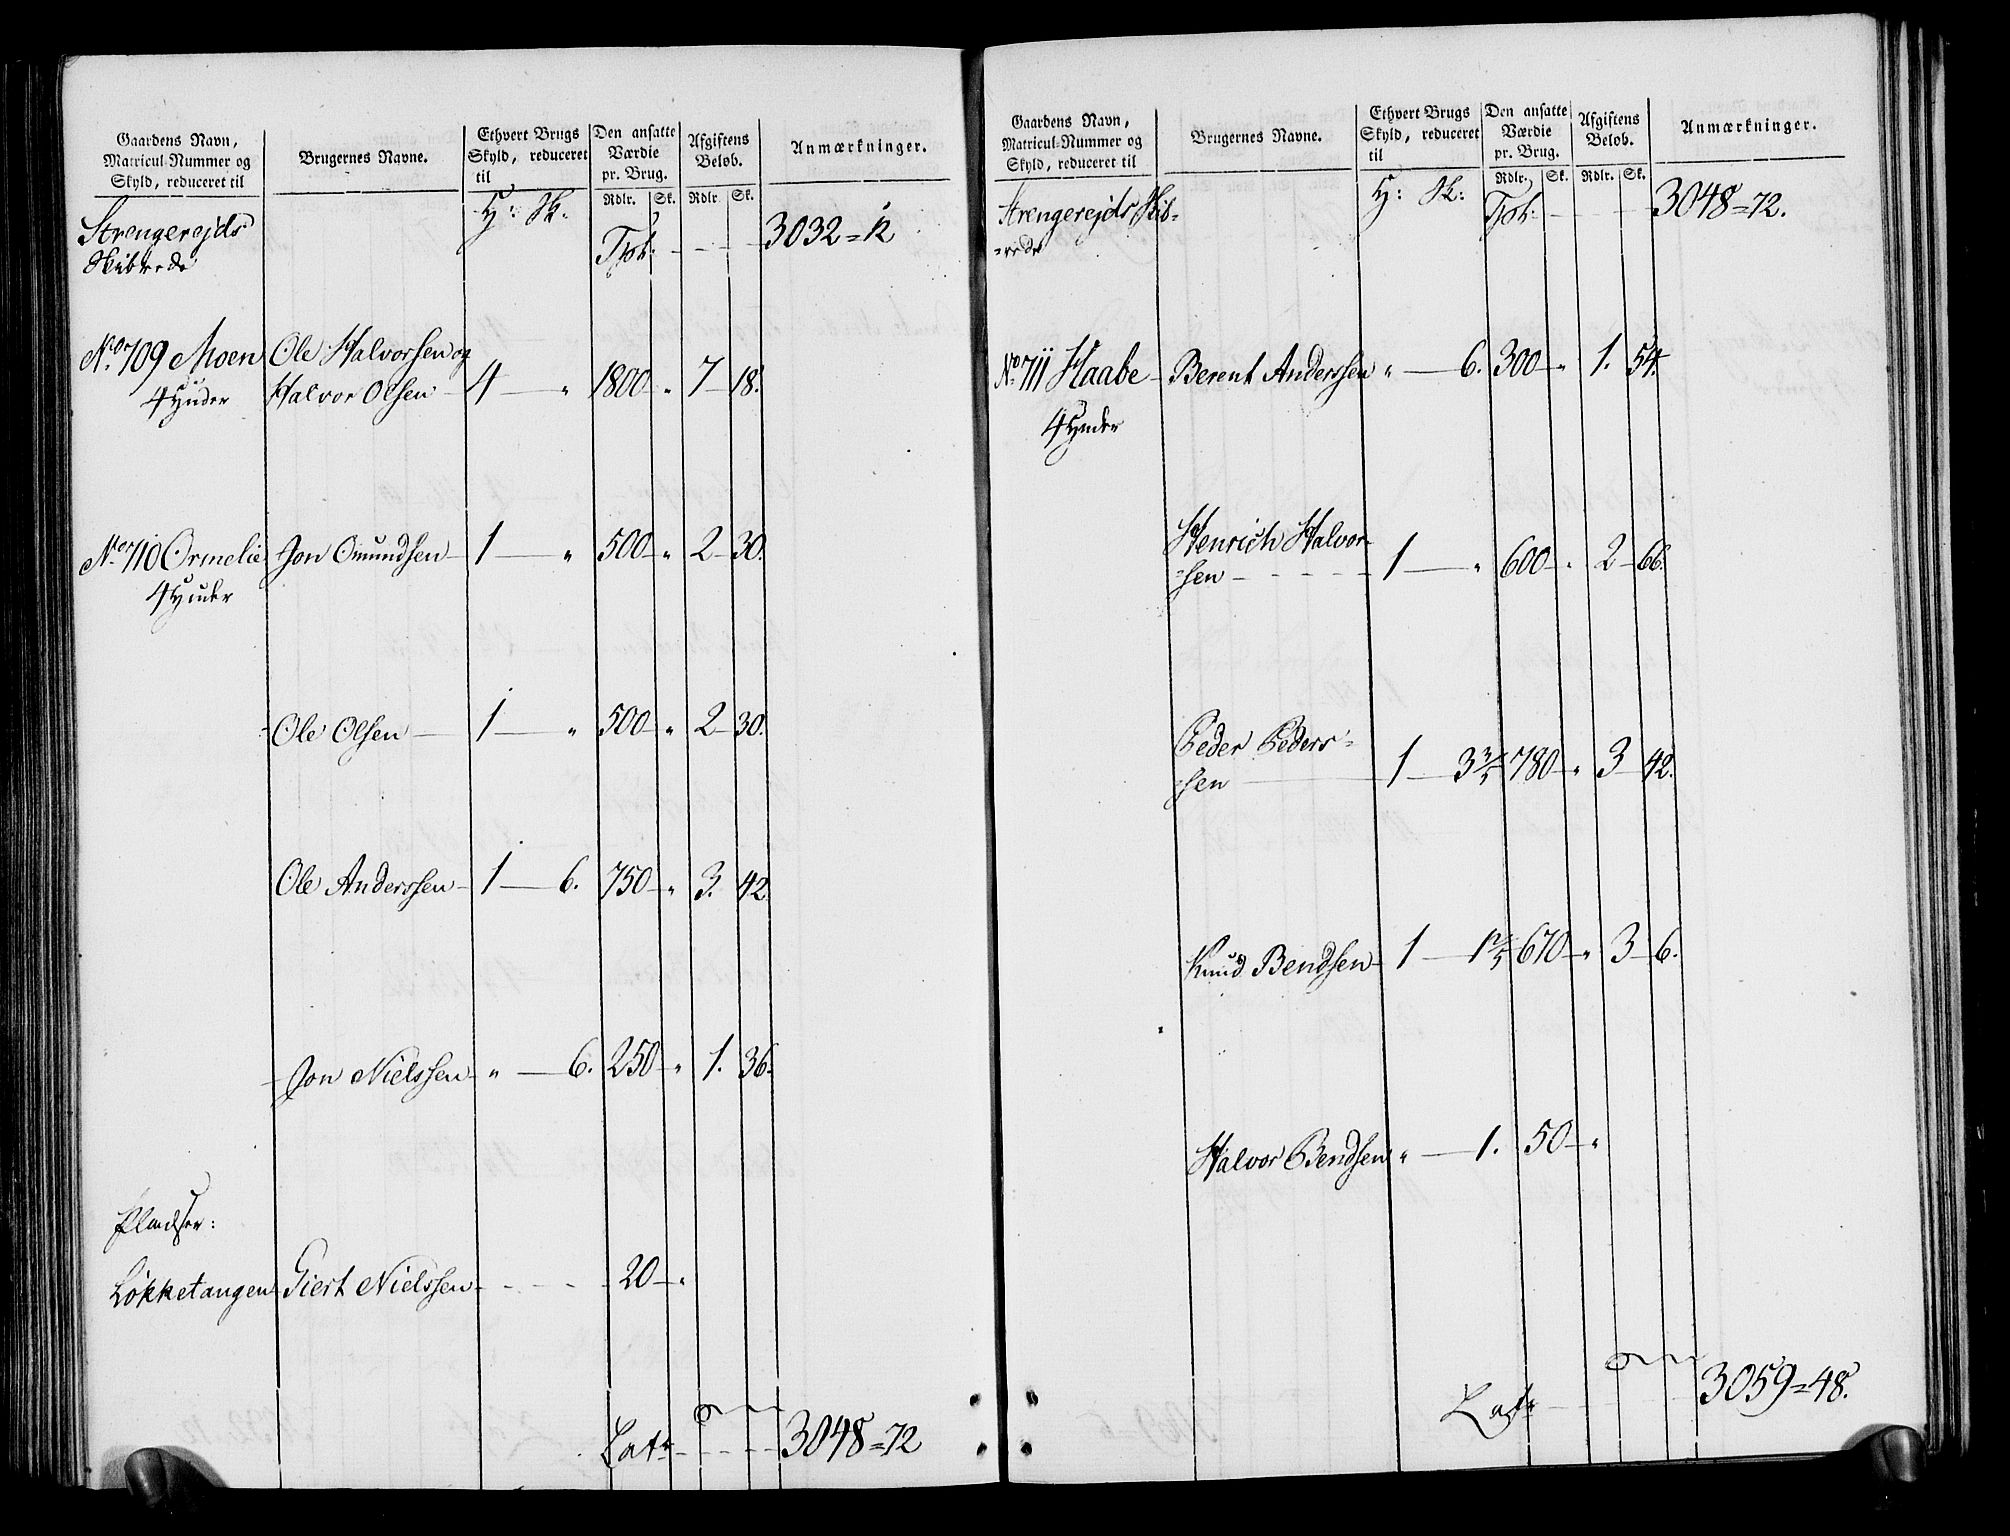 Gaardens Navn,
Matricul-Nummer og
Skyld, reduceret til
Brugernes Navne.
Ethvert Brugs
Skyld, reduceret
til
Den ansatte
Værdie
pr. Brug.
Rdlr. Sk.
Afgiftens
Beløb.
Rdlr Sk.
Anmærkninger.
Strengerejds
Skibrede
H: Sk.
Tpt: 3032=12
No. 709 Moen Ole Halvorsen og
4 Huder Halvor Olsen 4 — " 1800 " 7 18.
No. 710 Ormelie Jon Omundsen 1 — " 500 " 2 30.
4 Huder
Ole Olsen 1 — " 500 " 2 30.
Ole Anderssen 1 — 6. 750 " 3. 42
Jon Nielssen " — 6. 250 " 1. 36.
Pladser:
Løkketangen Giert Nielssen 20 "
Latr 3048=72
Gaardens Navn,
Matricul-Nummer og
Skyld, reduceret til
Brugernes Navne.
Ethvert Brugs
Skyld, reduceret
til
Den ansatte
Værdie
pr. Brug.
Rdlr. Sk.
Afgiftens
Beløb.
Rdlr. Sk.
Anmærkninger.
Strengerejds Skib=
=rede
H: Sk:
Tpt: 3048=72.
No. 711 Haabe Berent Anderssen " — 6. 300 " 1. 54.
4 Huder
Henrich Halvor=
=sen 1 — " 600 " 2 66.
Peder Peders=
=sen 1 — 3 3/5 780 " 3 42.
Knud Bendsen 1 — 1 2/5 670 " 3 6.
Halvor Bendsen " — 1. 50 "
Latr 3059=48.